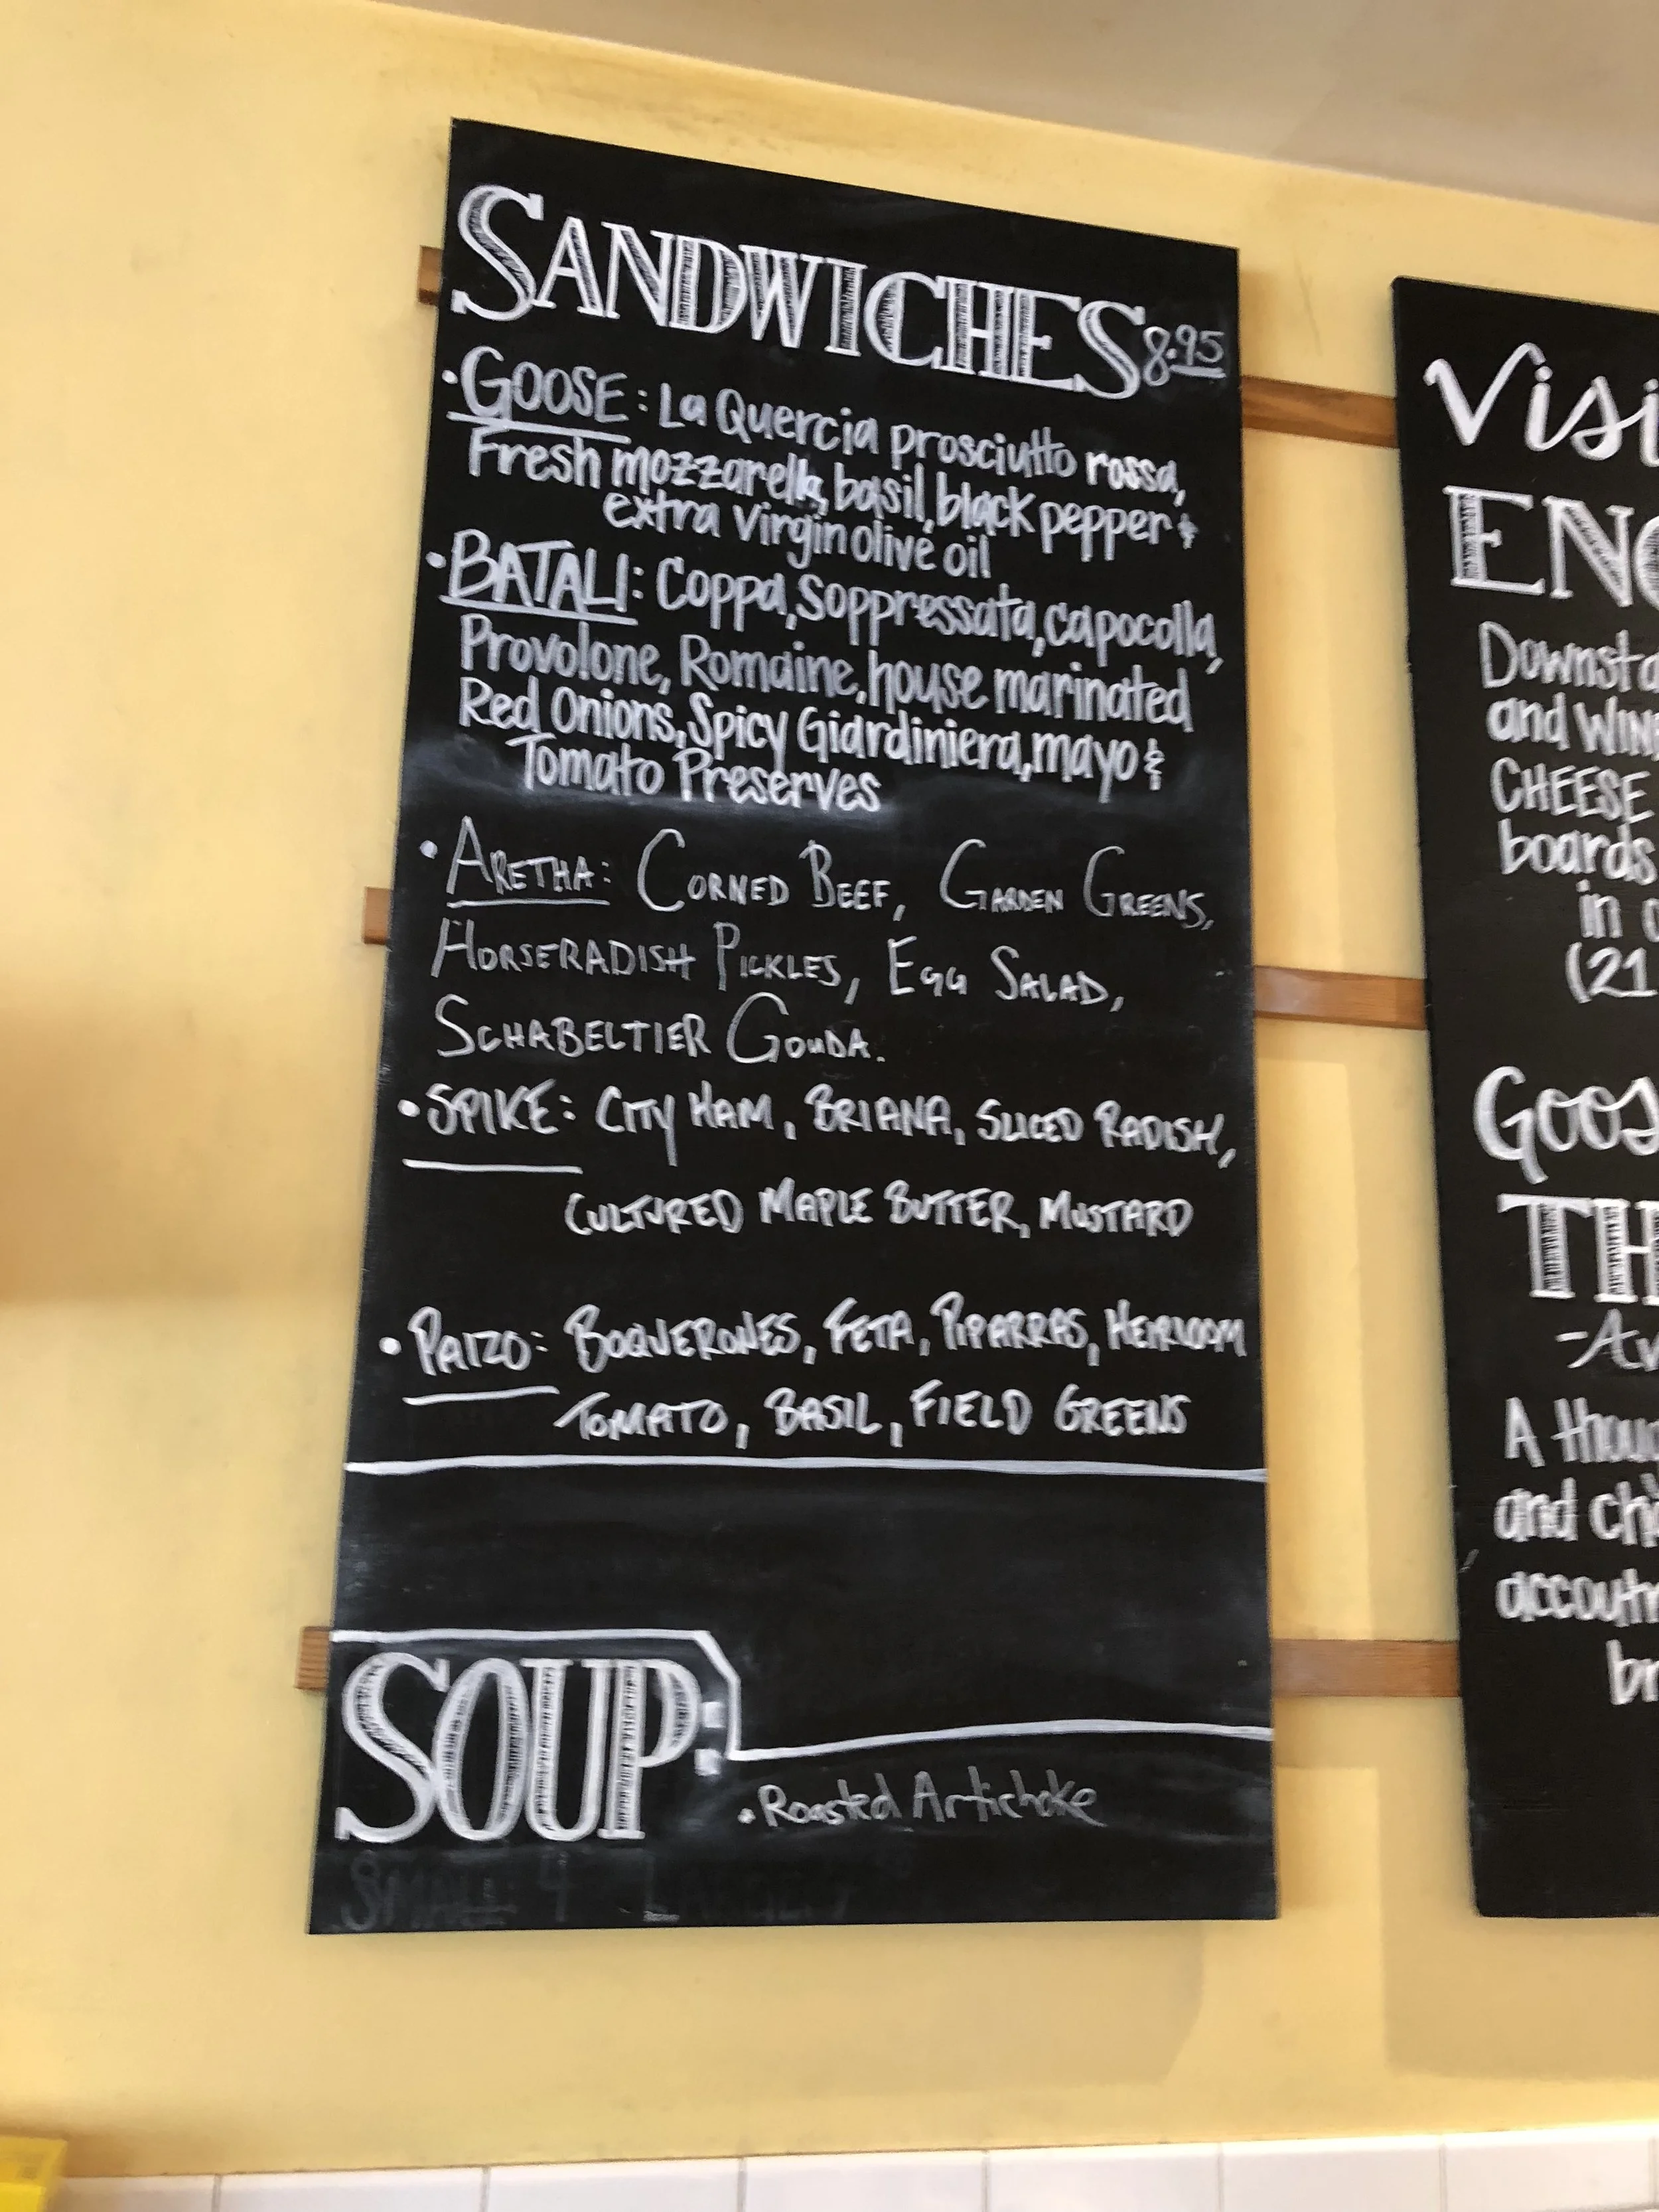 SANDWICHES 8.95
• GOOSE: La Quercia prosciutto rossa,
Fresh mozzarella, basil, black pepper +
extra virgin olive oil
• BATALI: Coppa, soppressata, capocolla,
Provolone, Romaine, house marinated
Red Onions, Spicy Giardiniera, mayo &
Tomato Preserves
• ARETHA: CORNED BEEF, GARDEN GREENS,
HORSERADISH PICKLES, EGG SALAD,
SCHABELTIER GOUDA.
• SPIKE: CITY HAM, BRIANA, SLICED RADISH,
CULTURED MAPLE BUTTER, MUSTARD
• PAIZO: BOQUERONES, FETA, PIPARRAS, HEIRLOOM
TOMATO, BASIL, FIELD GREENS
SOUP:
• Roasted Artichoke
SMALL 4
Visi
ENO
Downsta
and WINE
CHEESE
boards
in c
(21
Goos
TH
-Av
A thou
and chi
accoutr
br